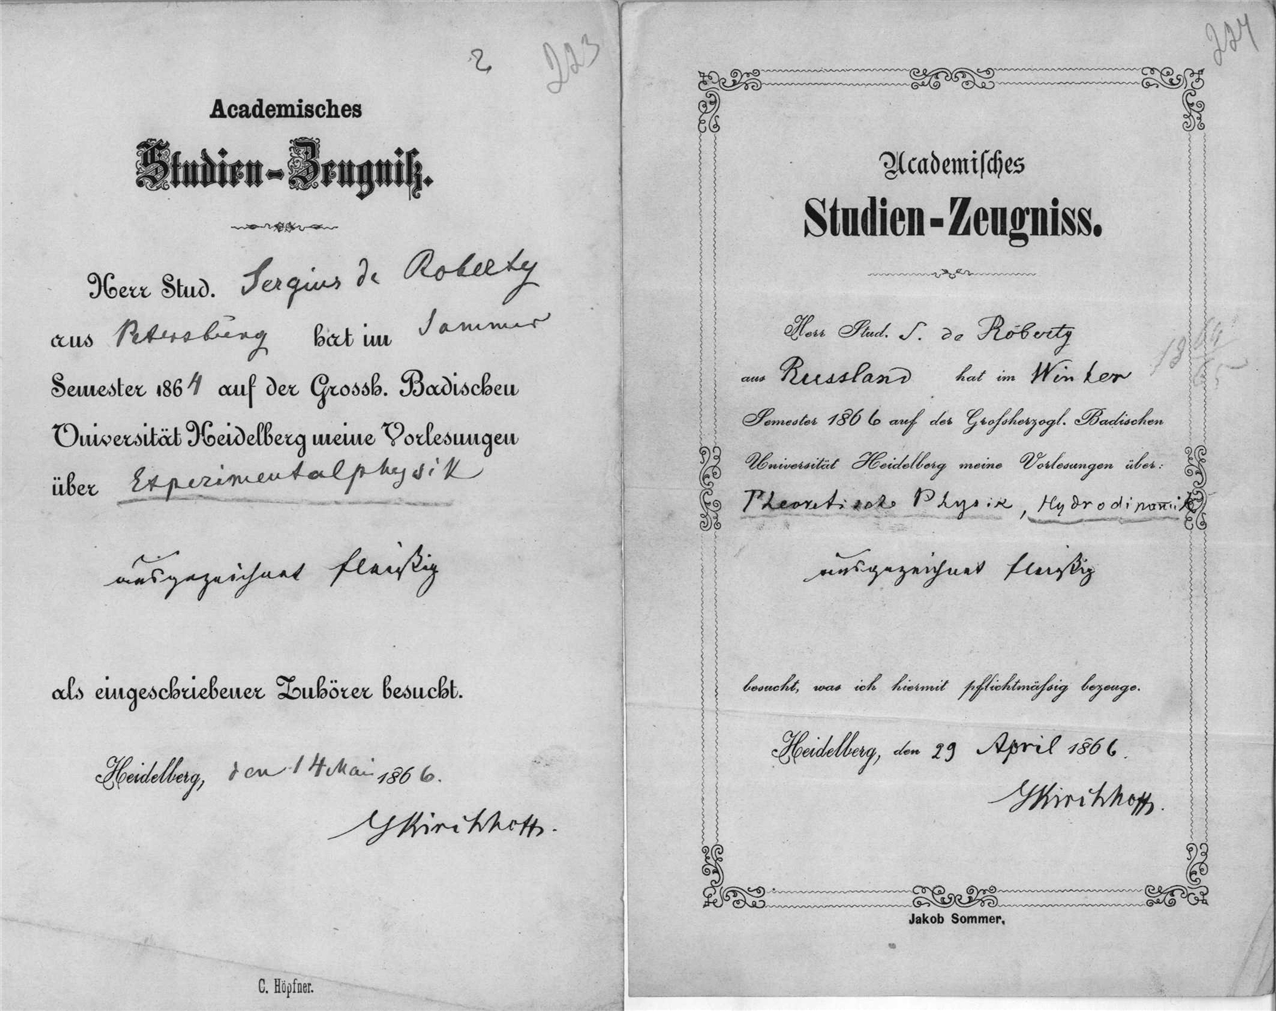 2
223
Academisches
Studien-Zeugniß.
Herr Stud. Sergius de Roberty
aus Petersburg hat im Sommer
Semester 1864 auf der Grossh. Badischen
Universität Heidelberg meine Vorlesungen
über Experimentalphysik
ausgezeichnet fleißig
als eingeschriebener Zuhörer besucht.
Heidelberg, den 14 Mai 1866.
GKirchhoff.
C. Höpfner.
224
Academisches
Studien-Zeugniss.
Herr Stud. S. de Roberty
aus Russland hat im Winter
1864/65
Semester 1866 auf der Großherzogl. Badischen
Universität Heidelberg meine Vorlesungen über:
Theoretische Physik, Hydrodinamik
ausgezeichnet fleißig
besucht, was ich hiermit pflichtmäßig bezeuge.
Heidelberg, den 29 April 1866.
GKirchhoff.
Jakob Sommer.